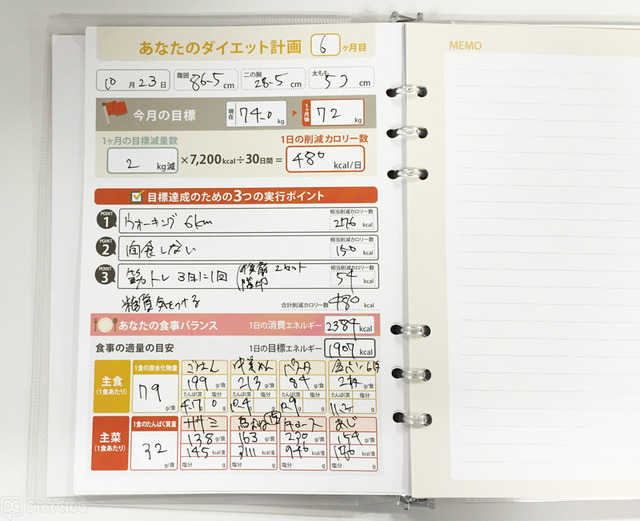 あなたのダイエット計画 6 ヶ月目
MEMO
10月23日 腹囲 86.5cm 二の腕 28.5cm 太もも 53cm
今月の目標 現在 74.0kg ▶ 1ヶ月後 72kg
1ヶ月の目標減量数 1日の削減カロリー数
2 kg減 ×7,200kcal÷30日間= 480 kcal/日
目標達成のための3つの実行ポイント
POINT 1 ウォーキング 6km 相当削減カロリー数 276 kcal
POINT 2 間食しない 相当削減カロリー数 150 kcal
POINT 3 筋トレ 3日に1回 2セット 相当削減カロリー数 54 kcal
糖質気をつける 合計削減カロリー数 480 kcal
あなたの食事バランス 1日の消費エネルギー 2384 kcal
食事の適量の目安 1日の目標エネルギー 1907 kcal
主食 (1食あたり) 1食の炭水化物量 79 g/食
ごはん 中華めん
199 g/食 213 g/食 84 g/食
たんぱく質 塩分 たんぱく質 塩分 たんぱく質 塩分 たんぱく質 塩分
主菜 (1食あたり) 1食のたんぱく質量 32 g/食
ササミ あじ
138 g/食 163 g/食 230 g/食 154 g/食
145 kcal/食
塩分 g 塩分 g 塩分 g 塩分 g
DietClub